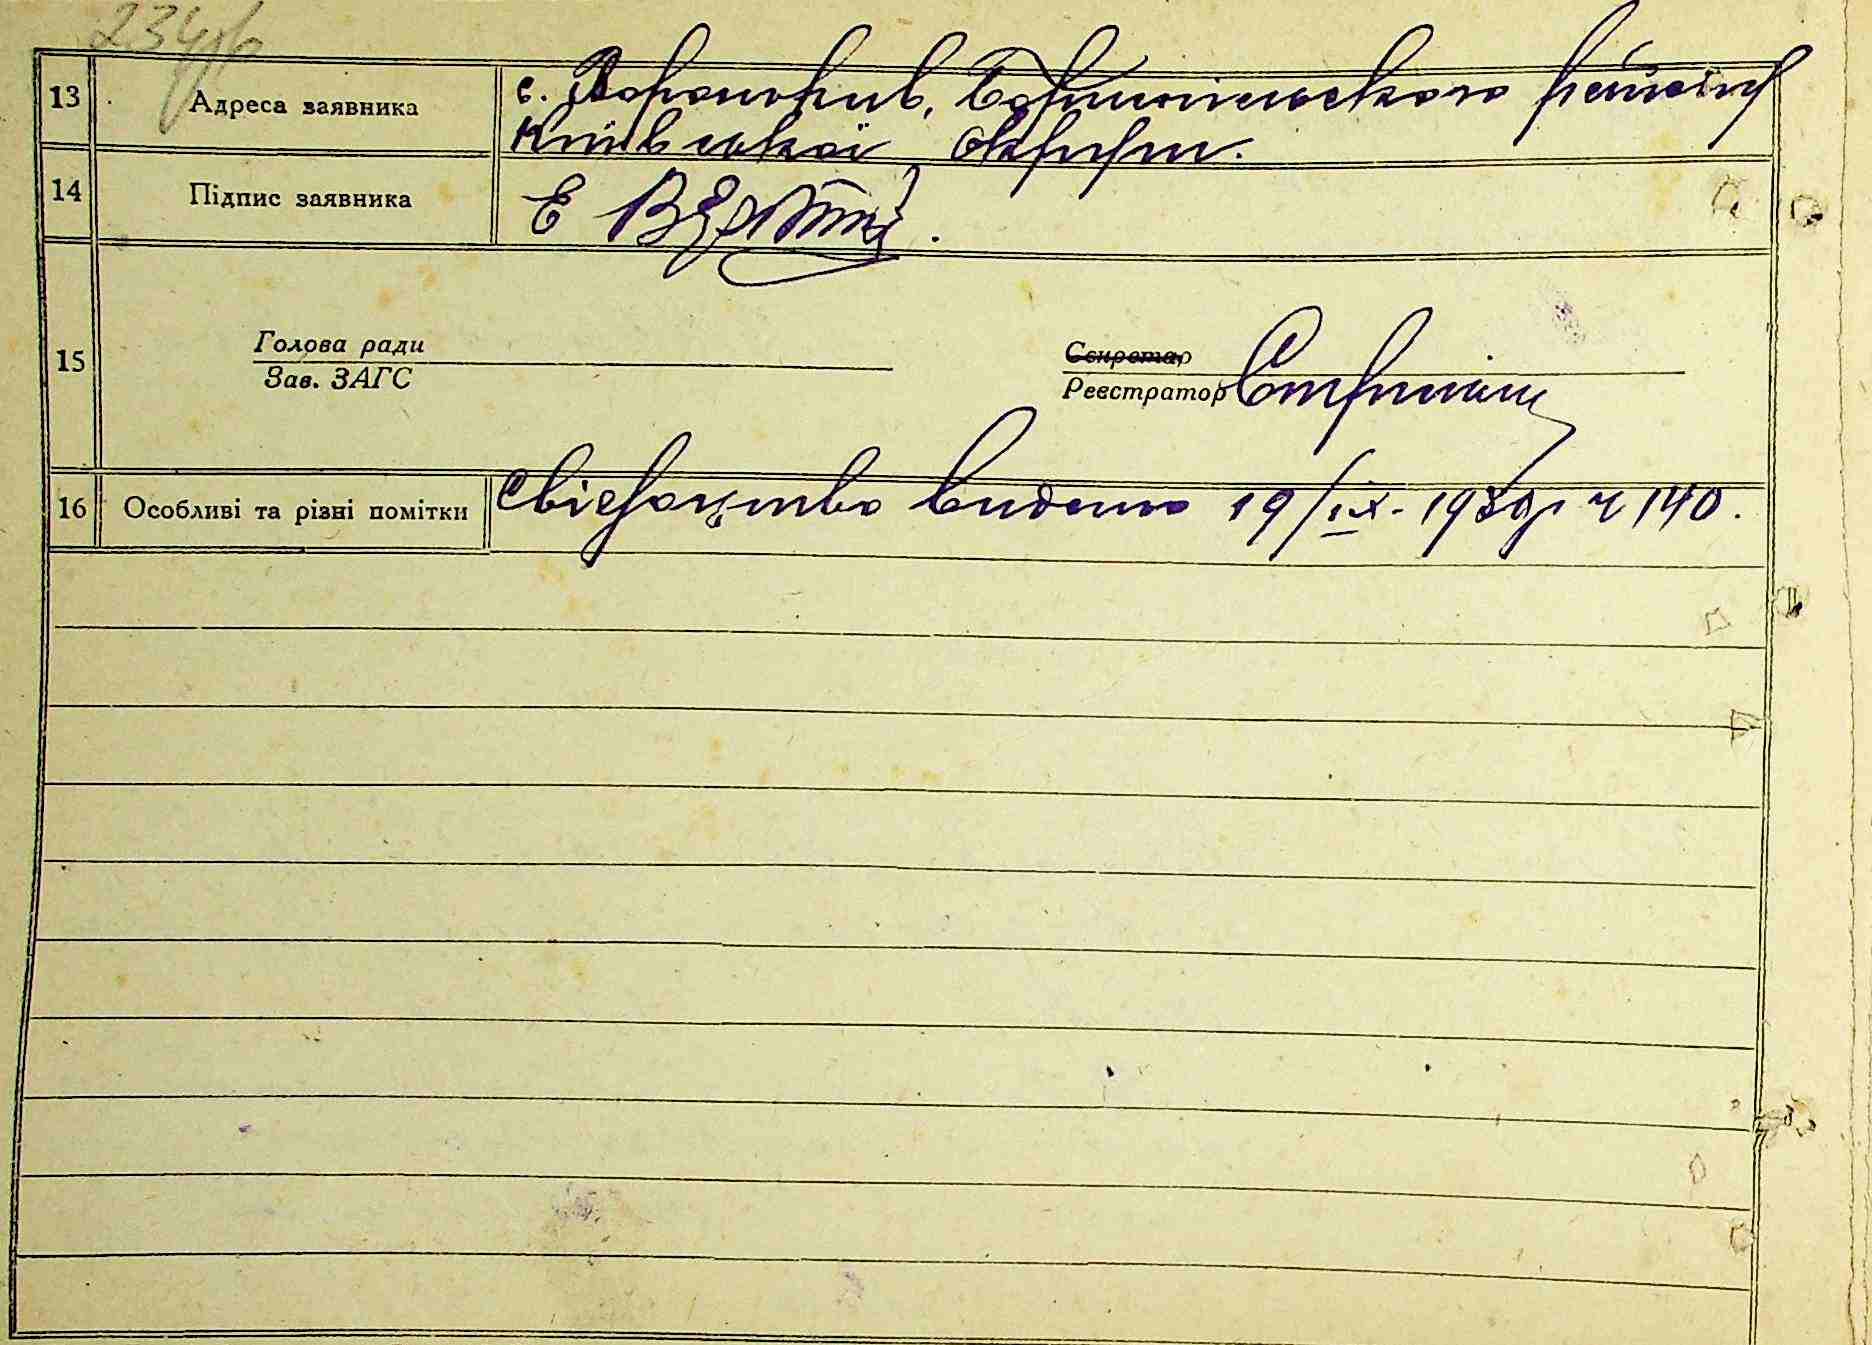 234
13 Адреса заявника с. Вороньків, Бориспільського району
Київської округи.
14 Підпис заявника Е
15 Голова ради Секретар
Зав. ЗАГС Реєстратор
16 Особливі та різні помітки Свідоцтво видано 19/IX-1930р ч 140.